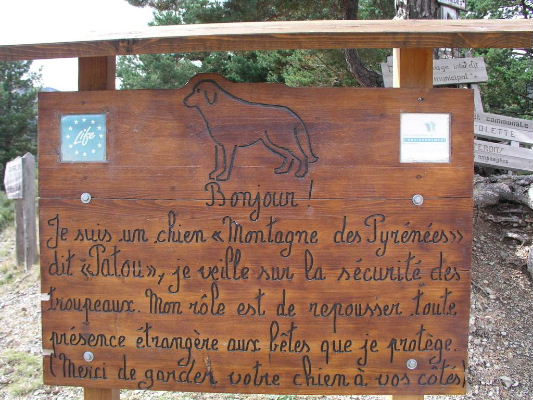 Life
Bonjour !
Je suis un chien «Montagne des Pyrénées»
dit «Patou», je veille sur la sécurité des
troupeaux. Mon rôle est de repousser toute
présence étrangère aux bêtes que je protège.
(Merci de garder votre chien à vos côtés)
municipal
communale